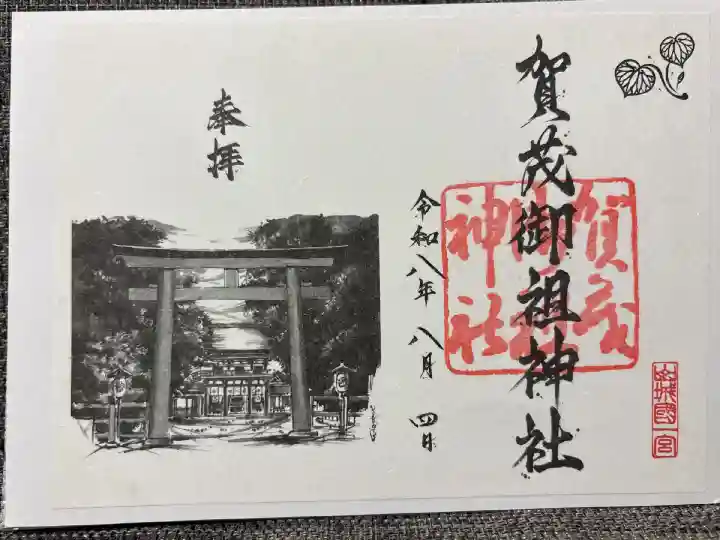 賀茂御祖神社
賀茂
御祖
神社
山城國一宮
令和八年 八月 四日
奉拝